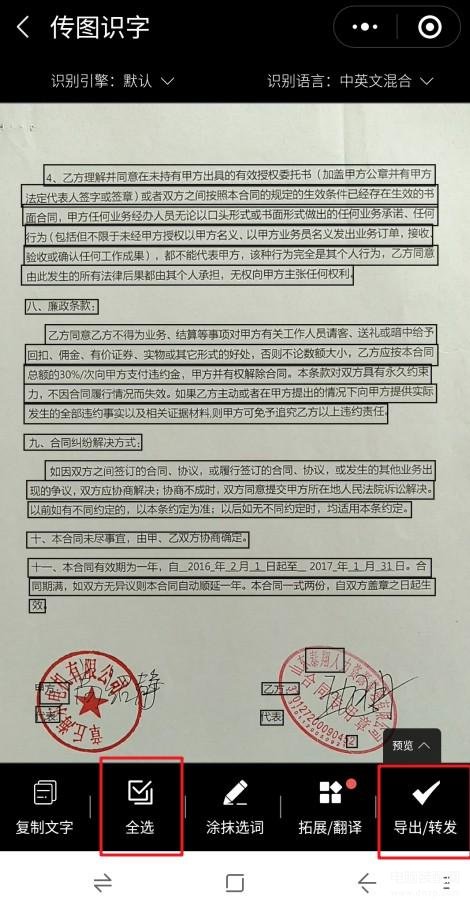 传图识字
识别引擎：默认
识别语言：中英文混合
4、乙方理解并同意在未持有甲方出具的有效授权委托书（加盖甲方公章并有甲方
法定代表人签字或签章）或者双方之间按照本合同的规定的生效条件已经存在生效的书
面合同，甲方任何业务经办人员无论以口头形式或书面形式做出的任何业务承诺、任何
行为（包括但不限于未经甲方授权以甲方名义、以甲方业务员名义发出业务订单，接收、
验收或确认任何工作成果），都不能代表甲方，该种行为完全是其个人行为，乙方同意
由此发生的所有法律后果都由其个人承担，无权向甲方主张任何权利。
八、廉政条款：
乙方同意乙方不得为业务、结算等事项对甲方有关工作人员请客、送礼或暗中给予
回扣、佣金、有价证券、实物或其它形式的好处，否则不论数额大小，乙方应按本合同
总额的30%/次向甲方支付违约金，甲方并有权解除合同。本条款对双方具有永久约束
力，不因合同履行情况而失效。如果乙方主动或者在甲方提出的情况下向甲方提供实际
发生的全部违约事实以及相关证据材料,则甲方可免予追究乙方以上违约责任。
九、合同纠纷解决方式：
如因双方之间签订的合同、协议，或履行签订的合同、协议，或发生的其他业务出
现的争议，双方应协商解决；协商不成时，双方同意提交甲方所在地人民法院诉讼解决。
以前如有不同约定的，以本条约定为准；以后如无不同约定时，均适用本条约定。
十、本合同未尽事宜，由甲、乙双方协商确定。
十一、本合同有效期为一年，自 2016 年 2 月 1 日起至 2017 年 1 月 31 日。合
同期满，如双方无异议则本合同自动顺延一年。本合同一式两份，自双方盖章之日起生
效。
甲方
乙方
代表
代表
电机有限公司
合同专用章
预览
复制文字
全选
涂抹选词
拓展/翻译
导出/转发